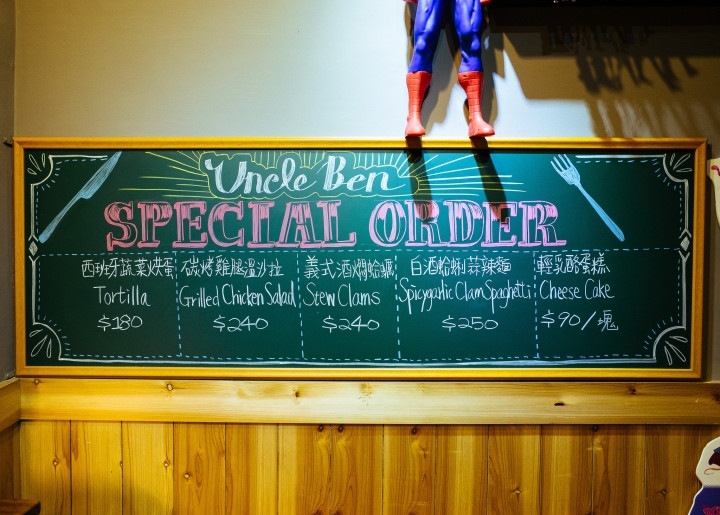 Uncle Ben
SPECIAL ORDER
西班牙蔬菜烘蛋
Tortilla
$180
碳烤雞腿溫沙拉
Grilled Chicken Salad
$240
義式酒燜蛤蠣
Stew Clams
$240
白酒蛤蜊蒜辣麵
Spicygarlic Clam Spaghetti
$250
輕乳酪蛋糕
Cheese Cake
$90/塊